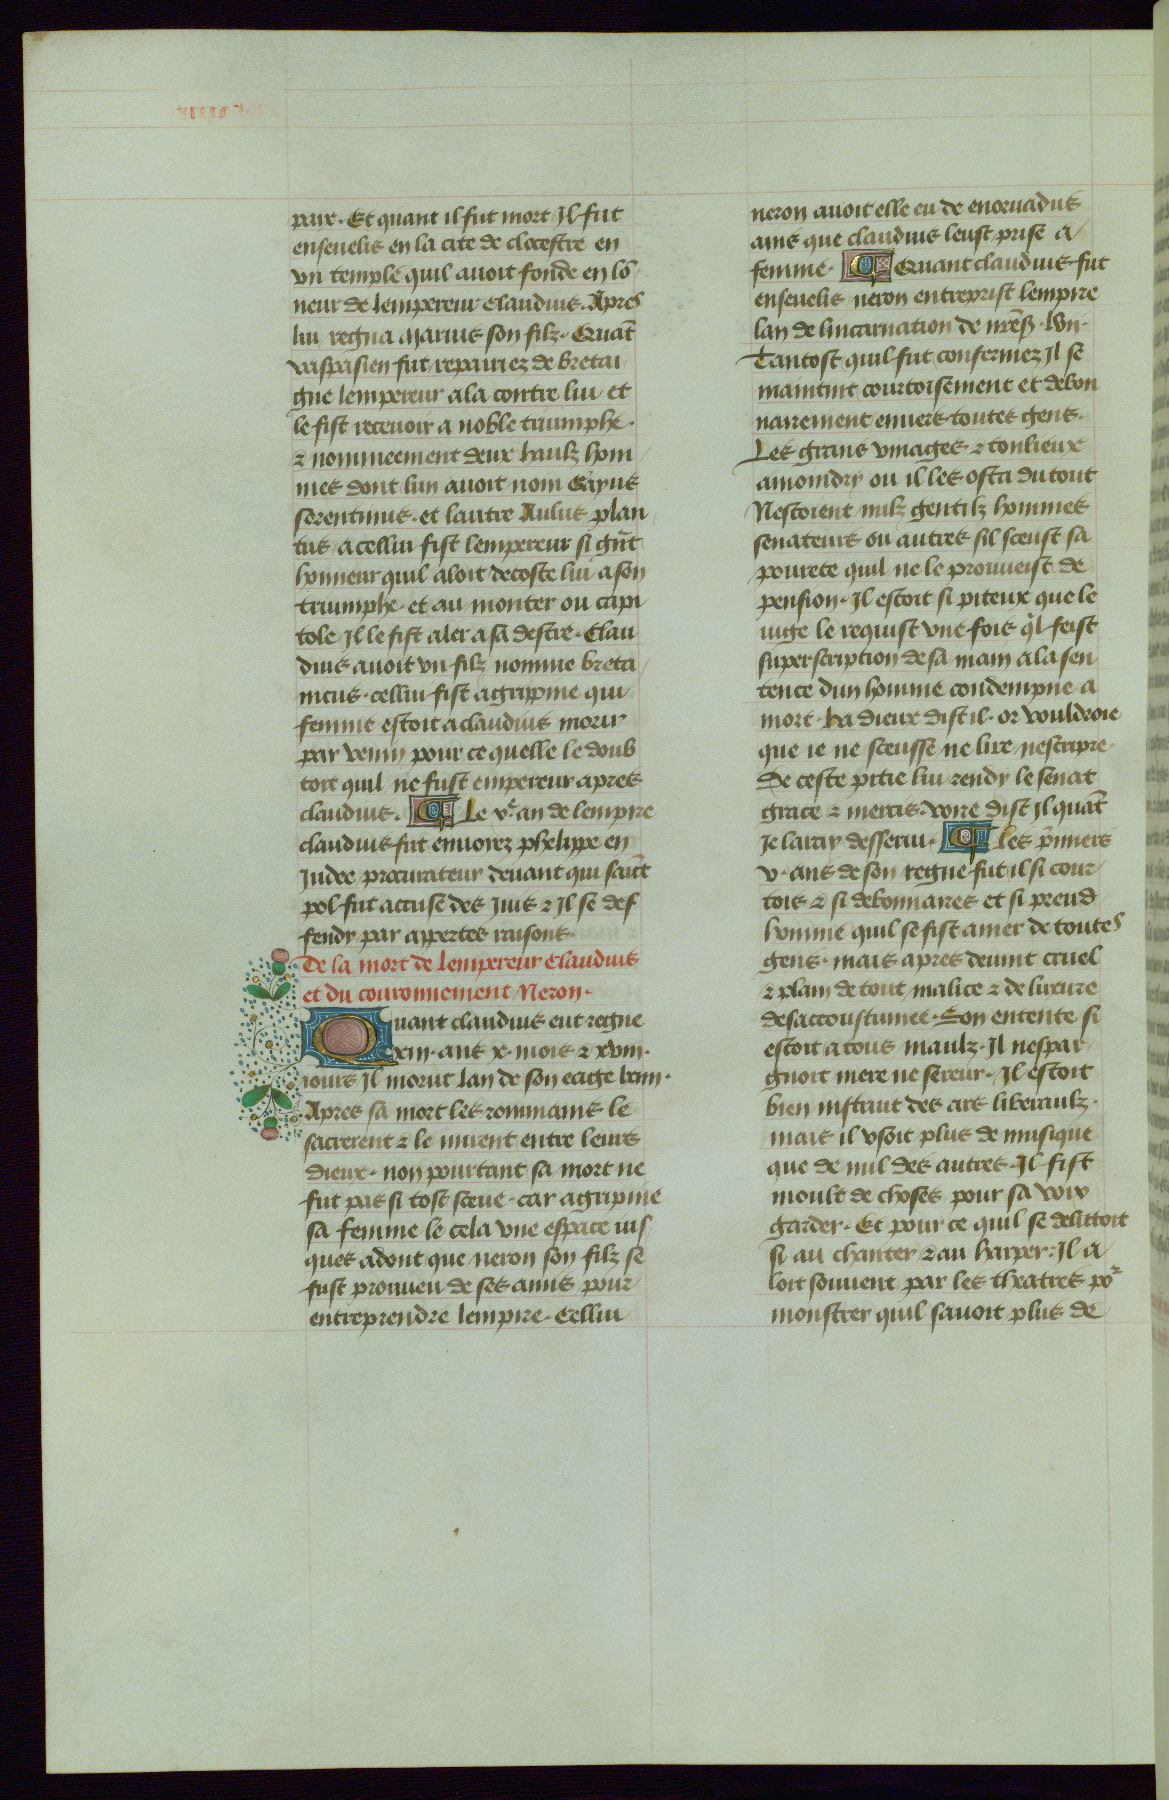 paix. Et quant il fut mort Il fut
enseuelis en la cite de clocestre en
vn temple quil auoit fonde en lō
neur de lempereur claudius. Apres
lui regna marius son filz. Quāt
vaspasien fut repairiez de bretai
gne lempereur ala contre lui et
le fist receuoir a noble triumphe.
& nommeement deux haulz hom
mes dont lun auoit nom Gayus
serentinus. et lautre Aulus plan
tus a cellui fist lempereur si grāt
honneur quil aloit decoste lui a son
triumphe. et au monter ou capi
tole Il le fist aler a sa destre. Clau
dius auoit vn filz nomme breta
nicus. cellui fist agrippine qui
femme estoit a claudius morir
par venin pour ce quelle le doub
toit quil ne fust empereur apres
claudius. Le ve an de lempire
claudius fut enuoiez phelippe en
Judee procurateur deuant qui saīt
pol fut accuse des Juis & Il se def
fendy par appertes raisons.
De la mort de lempereur Claudius
et du couronnement Neron.
Quant claudius eut regne
xiii. ans x. mois & xviii.
iours Il morut lan de son eaige lxiiii.
Apres sa mort les rommains le
sacrerent & le mirent entre leurs
dieux. non pourtant sa mort ne
fut pas si tost sceue. car agripine
sa femme le cela vne espace ius
ques adont que neron son filz se
fust proueu de ses amis pour
entreprendre lempire. Cellui
neron auoit elle eu de enoruadus
ains que claudius leust prise a
femme. Quant claudius fut
enseuelis neron entreprist lempire
lan de lincarnation de nrēs. lvii.
Tantost quil fut confermez Il se
maintint courtoisement et debon
nairement enuers toutes gens.
Les grans vinages & tonlieux
amoindry ou il les osta du tout
Nestoient nulz gentilz hommes
senateurs ou autres sil sceust sa
pourete quil ne le proueist de
pension. Il estoit si piteux que le
iuge le requist vne fois ql feist
superscription de sa main a la sen
tence dun homme condempne a
mort. ha dieux dist il. or vouldroie
que ie ne sceusse ne lire nescripre
De ceste pitie lui rendy le senat
grace & mercis. voire dist Il quāt
Je laray desserui. Les pmiers
v. ans de son regne fut il si cour
tois & si debonnaires et si preud
homme quil se fist amer de toutes
gens. mais apres deuint cruel
& plain de tout malice & de luxure
desaccoustumee. Son entente si
estoit a tous maulz. Il nespar
gnoit mere ne sereur. Il estoit
bien instruit des ars liberaulz.
mais il vsoit plus de musique
que de nul des autres. Il fist
moult de choses pour sa voix
garder. Et pour ce quil se delittoit
si au chanter & au harper. Il a
loit souuent par les theatres po2
monstrer quil sauoit plus de